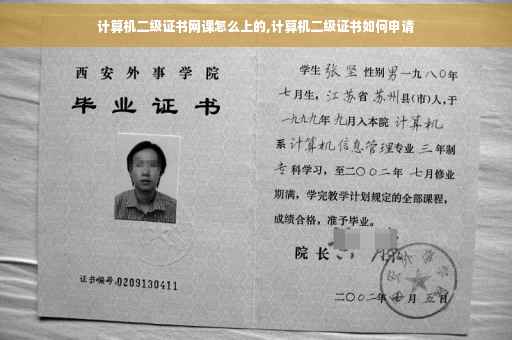 计算机二级证书网课怎么上的,计算机二级证书如何申请
西安外事学院
毕业证书
证书编号:0209130411
学生 张坚 性别 男 一九八〇年
七月生, 江苏省 苏州县(市)人,于
一九九九年 九月入本院 计算机
系 计算机信息管理专业 三 年制
专 科学习,至二〇〇二年 七月修业
期满,学完教学计划规定的全部课程,
成绩合格,准予毕业。
院长
二〇〇二年 月 五日